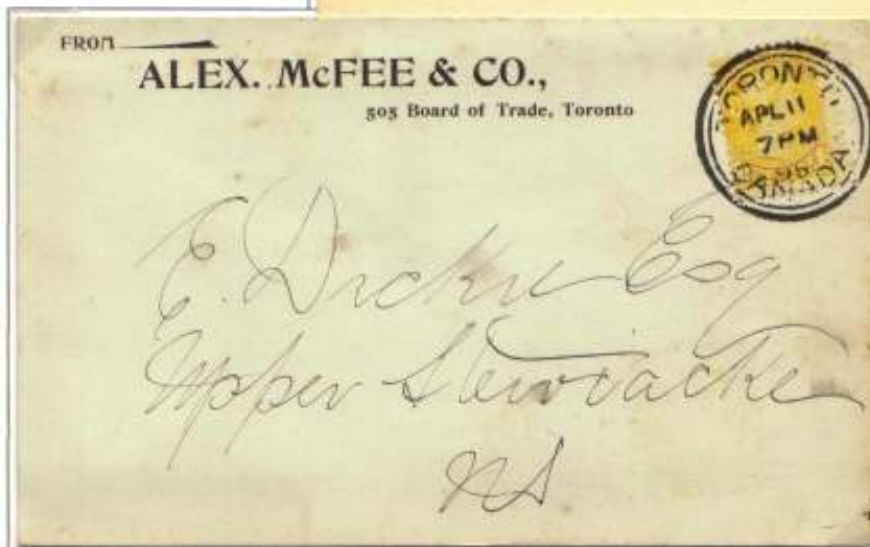 FROM
ALEX. McFEE & CO.,
505 Board of Trade, Toronto
TORONTO
APL 11
7 PM
CANADA.
E. Dickie Esq
Upper Stewiacke
NS